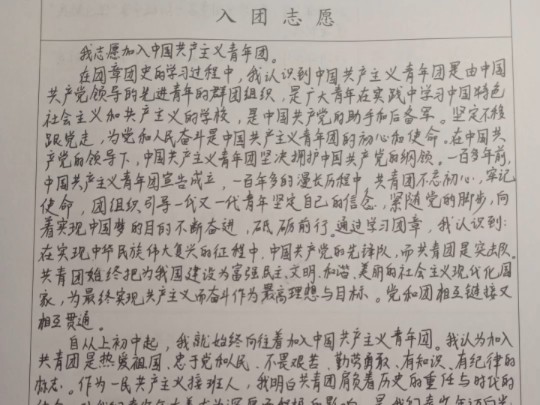 入团志愿
我志愿加入中国共产主义青年团。
在团章团史的学习过程中,我认识到中国共产主义青年团是由中国
共产党领导的先进青年的群团组织,是广大青年在实践中学习中国特色
社会主义和共产主义的学校,是中国共产党的助手和后备军。坚定不移
跟党走,为党和人民奋斗是中国共产主义青年团的初心和使命。在中国共
产党的领导下,中国共产主义青年团坚决拥护中国共产党的纲领。一百多年前,
中国共产主义青年团宣告成立,一百年多的漫长历程中,共青团不忘初心,牢记
使命,团组织引导一代又一代青年坚定自己的信念,紧随党的脚步,向
着实现中国梦的目的不断奋进,砥砺前行。通过学习团章,我认识到:
在实现中华民族伟大复兴的征程中,中国共产党的先锋队,而共青团是突击队。
共青团始终把为我国建设为富强、民主、文明、和谐、美丽的社会主义现代化国
家,为最终实现共产主义而奋斗作为最高理想与目标。党和团相互链接又
相互贯通。
自从上初中起,我就始终向往着加入中国共产主义青年团。我认为加入
共青团是热爱祖国、忠于党和人民、不畏艰苦、勤劳勇敢、有知识、有纪律的
标志。作为一民共产主义接班人,我明白共青团肩负着历史的重任与时代的